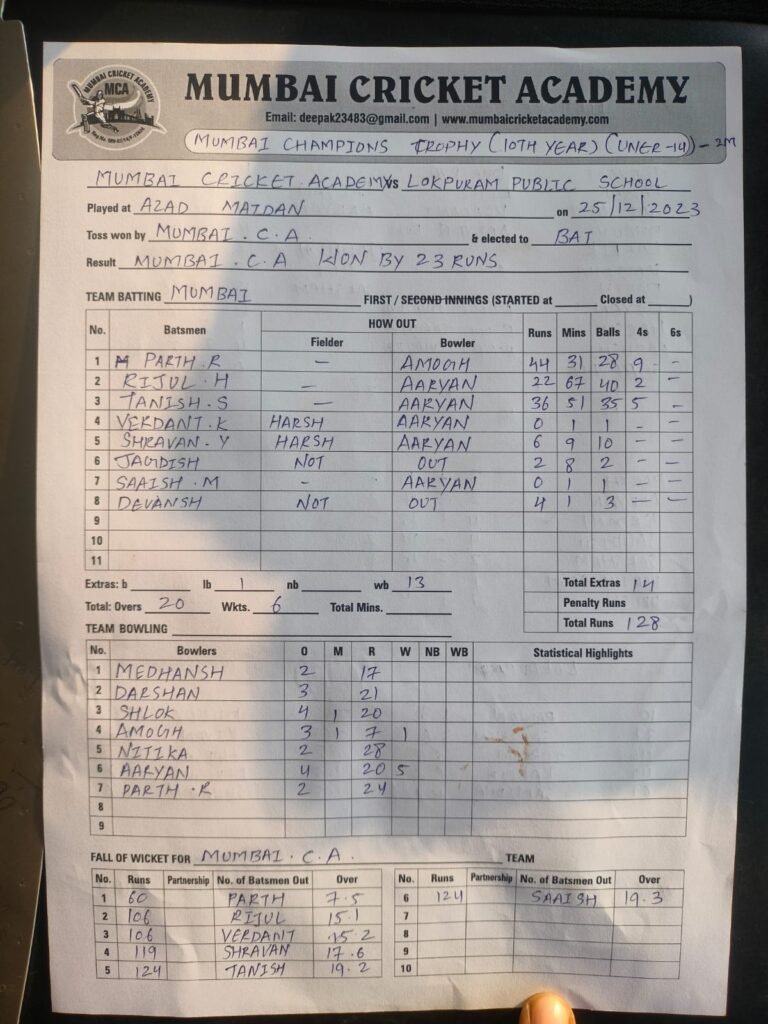 MUMBAI CRICKET ACADEMY
MCA
MUMBAI CRICKET ACADEMY
Email: deepak23483@gmail.com | www.mumbaicricketacademy.com
MUMBAI CHAMPIONS TROPHY (10TH YEAR) (UNER-14) - 2M
MUMBAI CRICKET ACADEMY Vs LOKPURAM PUBLIC SCHOOL
Played at AZAD MAIDAN on 25/12/2023
Toss won by MUMBAI . C . A & elected to BAT
Result MUMBAI . C . A WON BY 23 RUNS
TEAM BATTING MUMBAI FIRST / SECOND INNINGS (STARTED at Closed at )
No. Batsmen HOW OUT Runs Mins Balls 4s 6s
Fielder Bowler
1 PARTH . R – AMOGH 44 31 28 9 –
2 RIJUL . H – AARYAN 22 67 40 2 –
3 TANISH . S – AARYAN 36 51 35 5 –
4 VERDANT . K HARSH AARYAN 0 1 1 – –
5 SHRAVAN . Y HARSH AARYAN 6 9 10 – –
6 JAGDISH NOT OUT 2 8 2 – –
7 SAAISH . M – AARYAN 0 1 1 – –
8 DEVANSH NOT OUT 4 1 3 – –
9
10
11
Extras: b lb 1 nb wb 13 Total Extras 14
Total: Overs 20 Wkts. 6 Total Mins. Penalty Runs
Total Runs 128
TEAM BOWLING
No. Bowlers O M R W NB WB Statistical Highlights
1 MEDHANSH 2 17
2 DARSHAN 3 21
3 SHLOK 4 1 20
4 AMOGH 3 1 7 1
5 NITIKA 2 28
6 AARYAN 4 20 5
7 PARTH . R 2 24
8
9
FALL OF WICKET FOR MUMBAI . C . A . TEAM
No. Runs Partnership No. of Batsmen Out Over No. Runs Partnership No. of Batsmen Out Over
1 60 PARTH 7.5 6 124 SAAISH 19.3
2 106 RIJUL 15.1 7
3 106 VERDANT 15.2 8
4 119 SHRAVAN 17.6 9
5 124 TANISH 19.2 10